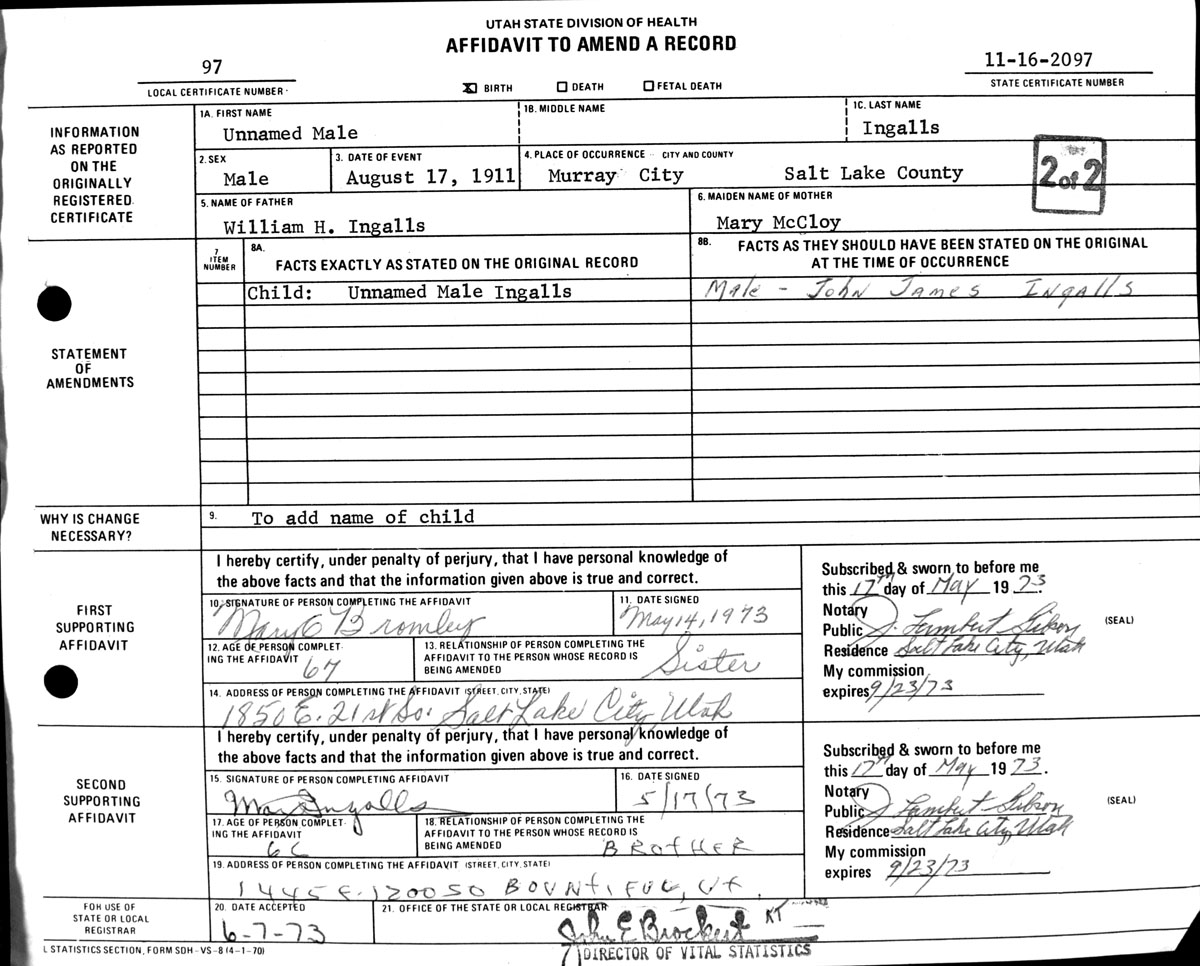 UTAH STATE DIVISION OF HEALTH
AFFIDAVIT TO AMEND A RECORD
97
LOCAL CERTIFICATE NUMBER
BIRTH DEATH FETAL DEATH
11-16-2097
STATE CERTIFICATE NUMBER
INFORMATION AS REPORTED ON THE ORIGINALLY REGISTERED CERTIFICATE
1A. FIRST NAME 1B. MIDDLE NAME 1C. LAST NAME
Unnamed Male Ingalls
2. SEX 3. DATE OF EVENT 4. PLACE OF OCCURRENCE CITY AND COUNTY
Male August 17, 1911 Murray City Salt Lake County
2 of 2
5. NAME OF FATHER 6. MAIDEN NAME OF MOTHER
William H. Ingalls Mary McCloy
STATEMENT OF AMENDMENTS
7 ITEM NUMBER
8A. FACTS EXACTLY AS STATED ON THE ORIGINAL RECORD
8B. FACTS AS THEY SHOULD HAVE BEEN STATED ON THE ORIGINAL
AT THE TIME OF OCCURRENCE
Child: Unnamed Male Ingalls Male - John James Ingalls
WHY IS CHANGE NECESSARY?
9. To add name of child
FIRST SUPPORTING AFFIDAVIT
I hereby certify, under penalty of perjury, that I have personal knowledge of
the above facts and that the information given above is true and correct.
10. SIGNATURE OF PERSON COMPLETING THE AFFIDAVIT 11. DATE SIGNED
Mary C Bromley May 14, 1973
12. AGE OF PERSON COMPLETING THE AFFIDAVIT
67
13. RELATIONSHIP OF PERSON COMPLETING THE AFFIDAVIT TO THE PERSON WHOSE RECORD IS BEING AMENDED
Sister
14. ADDRESS OF PERSON COMPLETING THE AFFIDAVIT (STREET, CITY, STATE)
1850 E. 21st So. Salt Lake City, Utah
Subscribed & sworn to before me
this 17th day of May 1973.
Notary
Public J. Lambert Gibson (SEAL)
Residence Salt Lake City, Utah
My commission
expires 9/23/73
SECOND SUPPORTING AFFIDAVIT
I hereby certify, under penalty of perjury, that I have personal knowledge of
the above facts and that the information given above is true and correct.
15. SIGNATURE OF PERSON COMPLETING AFFIDAVIT 16. DATE SIGNED
Ingalls 5/17/73
17. AGE OF PERSON COMPLETING THE AFFIDAVIT
18. RELATIONSHIP OF PERSON COMPLETING THE AFFIDAVIT TO THE PERSON WHOSE RECORD IS BEING AMENDED
BROTHER
19. ADDRESS OF PERSON COMPLETING THE AFFIDAVIT (STREET, CITY, STATE)
1445 E. 1200 SO BOUNTIFUL, UT.
Subscribed & sworn to before me
this 17th day of May 1973.
Notary
Public J. Lambert Gibson (SEAL)
Residence Salt Lake City, Utah
My commission
expires 9/23/73
FOR USE OF STATE OR LOCAL REGISTRAR
20. DATE ACCEPTED 21. OFFICE OF THE STATE OR LOCAL REGISTRAR
6-7-73 John E Brockert KT
DIRECTOR OF VITAL STATISTICS
L STATISTICS SECTION, FORM SDH-VS-8 (4-1-70)